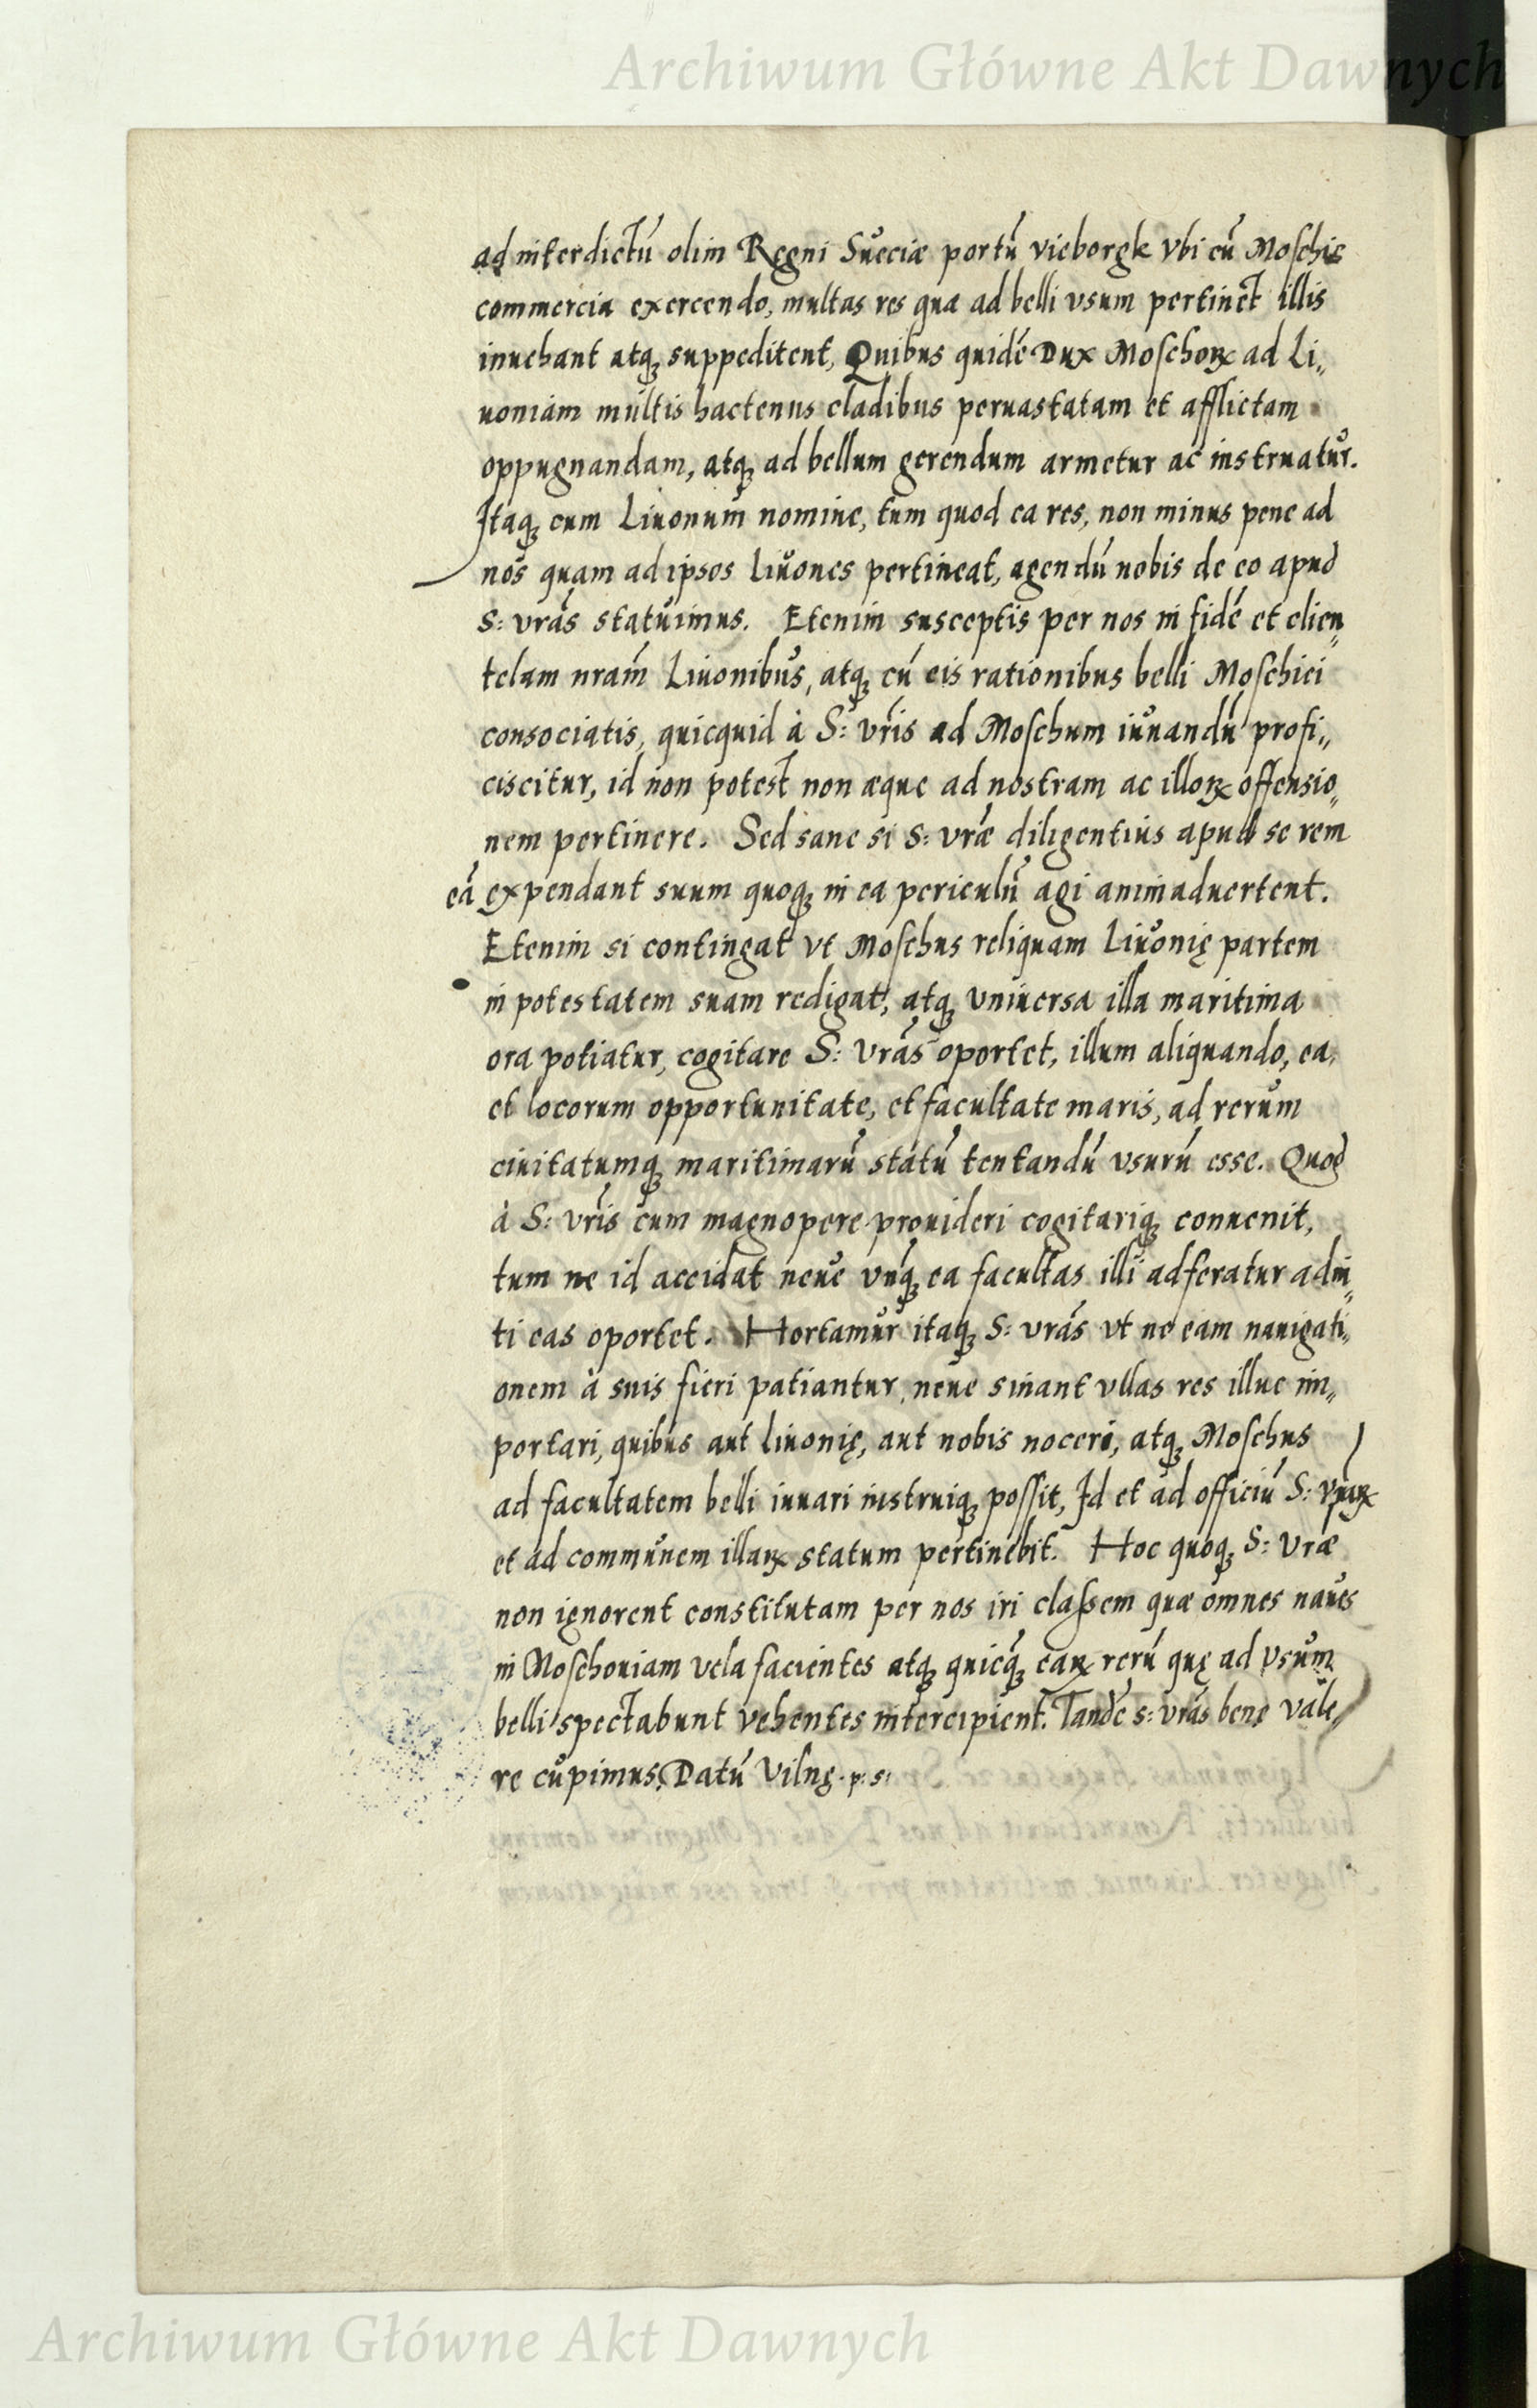 Archiwum Główne Akt Dawnych
ad interdictú olim Regni Sueciæ portú vieborgk vbi cú Moschis
commercia exercendo, multas res quæ ad belli vsum pertinét illis
inuehant atq; suppeditent, Quibus quidé Dux Moschoꝝ ad Li„
uoniam multis hactenus cladibus peruastatam et afflictam
oppugnandam, atq; ad bellum gerendum armetur ac instruatur.
Itaq; cum Liuonum nomine, tum quod ea res, non minus pene ad
nos quam ad ipsos Liuones pertineat, agendú nobis de eo apud
S: vrás statuimus. Etenim susceptis per nos in fidé et clien„
telam nrám Liuonibus, atq; cú eis rationibus belli Moschici
consociatis, quicquid à S: vrís ad Moschum iuuandú profi„
ciscitur, id non potest non æque ad nostram ac illoꝝ offensio„
nem pertinere. Sed sane si S: vræ diligentius apud se rem
eá expendant suum quoq; in ea periculú agi animaduertent.
Etenim si contingat vt Moschus reliquam Liuonię partem
in potestatem suam redigat, atq; vniuersa illa maritima
ora potiatur, cogitare S: vrás oportet, illum aliquando, ea,
et locorum opportunitate, et facultate maris, ad rerum
ciuitatumq; maritimarú statú tentandú vsurú esse. Quod
à S: vrís cum magnopere prouideri cogitariq; conuenit,
tum ne id accidat neue vnq́; ea facultas illi adferatur adni„
ti eas oportet. Hortamur itaq; S: vrás vt ne eam nauigati„
onem à suis fieri patiantur, neue sinant vllas res illuc im„
portari, quibus aut liuonię, aut nobis noceri, atq; Moschus
ad facultatem belli iuuari instruiq; possit, Id et ad officiú S: vraꝝ
et ad communem illaꝝ statum pertinebit. Hoc quoq; S: vræ
non ignorent constitutam per nos iri claßem quæ omnes naues
in Moschouiam vela facientes atq; quicq́; eaꝝ rerú quę ad vsum
belli spectabunt vehentes intercipient. Tandé s: vrás bene vale„
re cupimus. Datú Vilnę. p: s:
Archiwum Główne Akt Dawnych